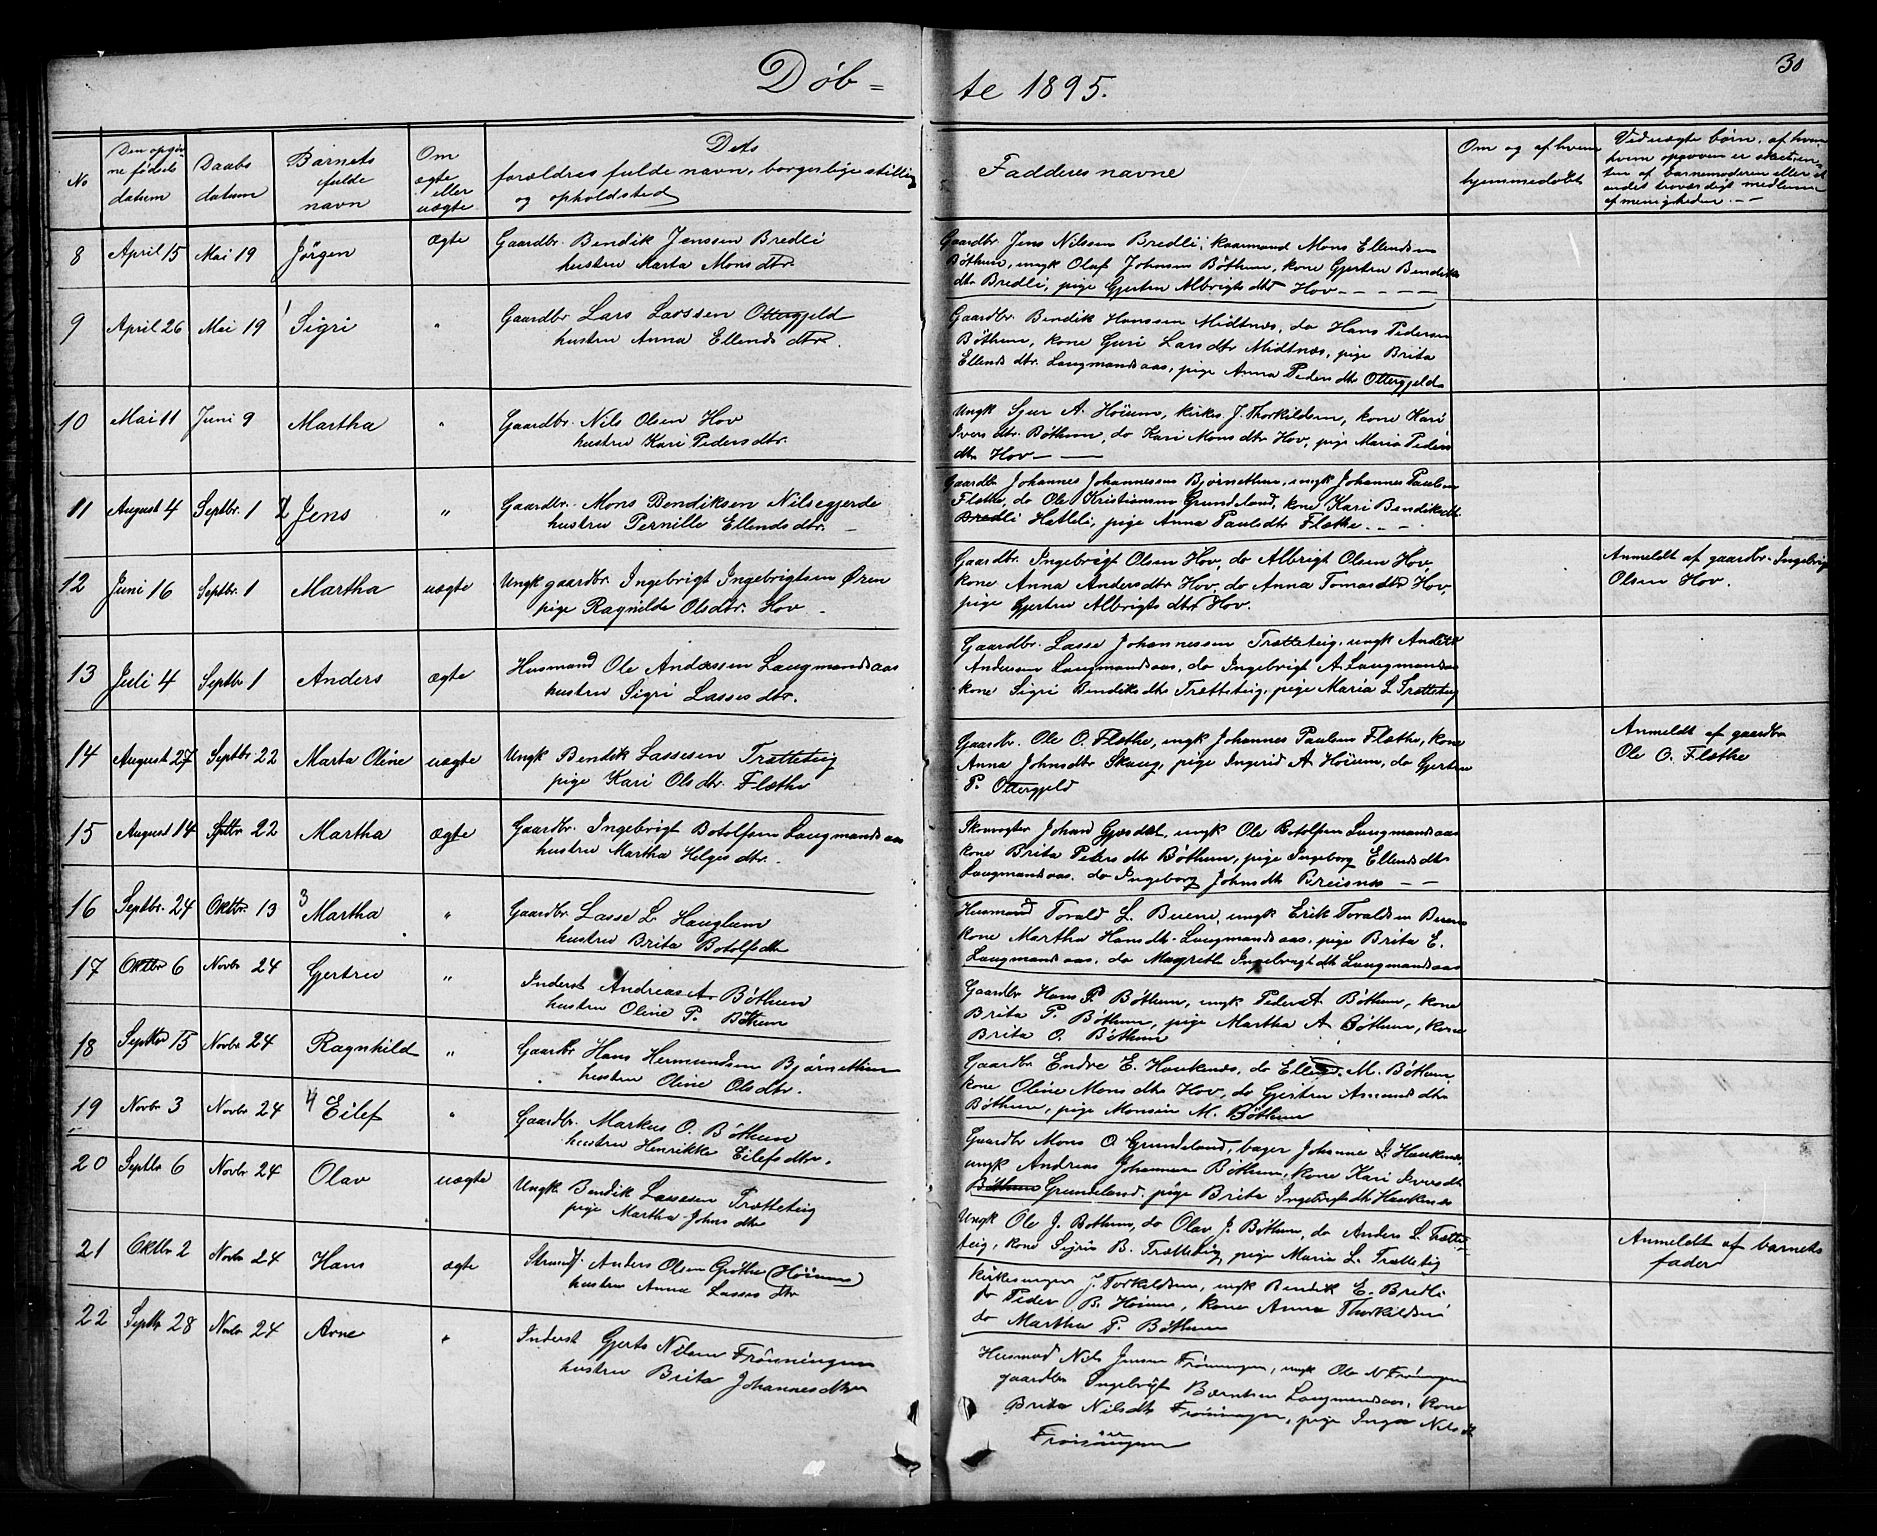 Døb=
te 1895.
30
No
Den opgiv
ne fødsels
datum
Daabs
datum
Barnets
fulde
navn
Om
ægte
eller
uægte
Dets
forældres fulde navn, borgerlige stilling
og opholdsted
Faddernes navne
Om og af hvem
hjemmedøbt
Ved uægte børn, af hvem
hvem opgaven er
ten af barnemoderen eller et
andet troværdigt medlem
af menigheden. — —
8 April 15 Mai 19 Jørgen ægte Gaardbr. Bendik Jenssen Bredli
hustru Marta Monsdtr.
Gaardbr Jens Nilssen Bredli, kaarmand Mons Ellendsen
Bøthun, ungk Olaf Johnsen Bøthun, kone Gjertru Bendiks
dtr Bredli, pige Gjertru Albrigtsdtr Hov — — — — —
9 April 26 Mai 19 1 Sigri " Gaardbr Lars Larssen Ottergjeld
hustru Anna Ellendsdtr.
Gaardbr Bendik Hanssen Midtnæs, do Hans Pedersen
Bøthun, kone Guri Larsdtr Midtnæs, pige Brita
Ellendsdtr. Laugmandsaas, pige Anna Pedersdtr Ottergjeld
10 Mai 11 Juni 9 Martha " Gaardbr. Nils Olsen Hov
hustru Kari Pedersdtr.
Ungk Sjur A. Høium, kirkes. J. Thorkildsen, kone Kari
Iversdtr. Bøthun, do Kari Monsdtr Hov, pige Maria Peders
dtr Hov — —
11 August 4 Septbr. 1 2 Jens " Gaardbr. Mons Bendiksen Nilsegjerde
hustru Pernille Ellendsdtr. —
Gaardbr Johannes Johannessen Bjørnethun, ungk Johannes Paulsen
Fløthe, do Ole Kristiansen Grundeland, kone Kari Bendiksdtr
Bredli Hatleli, pige Anna Paulsdtr Fløthe — — —
12 Juni 16 Septbr. 1 Martha uægte Ungk gaardbr Ingebrigt Ingebrigtsen Øren
pige Ragnilde Olsdtr. Hov —
Gaardbr. Ingebrigt Olsen Hov, do Albrigt Olsen Hov,
kone Anna Andersdtr Hov, do Anna Tomasdtr Hov,
pige Gjertru Albrigtsdtr Hov.
Anmeldt af gaardbr. Ingebrigt
Olsen Hov.
13 Juli 4 Septbr 1 Anders ægte Husmand Ole Andersen Laugmandsaas
hustru Sigri Lassesdtr.
Gaardbr. Lasse Johannessen Trætteteig, ungk Anders
Andersen Laugmandsaas, do Ingebrigt A. Laugmandsaas
kone Sigri Bendiksdtr Trætteteig, pige Maria L. Trætteteig
14 August 27 Septbr. 22 Marta Oline uægte Ungk Bendik Lassesen Trætteteig
pige Kari Olsdtr. Fløthe
Gaardbr. Ole O. Fløthe, ungk Johannes Paulsen Fløthe, kone
Anna Johnsdtr Skaug, pige Ingerid A. Høium, do Gjertru
P. Ottergjeld
Anmeldt af gaardbr
Ole O. Fløthe
15 August 14 Septbr. 22 Martha ægte Gaardbr. Ingebrigt Botolfsen Laugmandsaas
hustru Martha Helgesdtr.
Skovvogter Johan Gjesdal, ungk Ole Botolfsen Laugmandsaas
kone Brita Pedersdtr Bøthun, pige Ingeborg Ellendsdtr
Laugmandsaas, do Ingeborg Johnsdtr Breisnes — —
16 Septbr. 24 Oktbr. 13 3 Martha " Gaardbr Lasse L. Hauglum
hustru Brita Botolfsdtr
Husmand Torald L. Buene, ungk Erik Toraldsen Buene
kone Martha Hansdtr Laugmandsaas, pige Brita E.
Laugmandsaas, do Magrethe Ingebrigtsdtr Laugmandsaas
17 Oktbr 6 Novbr 24 Gjertru " Inderst Andreas A. Bøthun
hustru Oline P. Bøthun
Gaardbr Hans P. Bøthun, ungk Peder A. Bøthun, kone
Brita P. Bøthun, pige Martha A. Bøthun, kone
Brita O. Bøthun
18 Septbr 15 Novbr 24 Ragnhild " Gaardbr Hans Hermundsen Bjørnethun
hustru Oline Olsdtr.
Gaardbr Endre E. Haukenes, do Ellend M. Bøthun
kone Oline Monsdtr Hov, do Gjertru Amundsdtr
Bøthun, pige Monsine M. Bøthun
19 Novbr 3 Novbr 24 4 Eilef " Gaardbr. Markus O. Bøthun
hustru Henrikke Eilefsdtr.
Gaardbr Mons O. Grundeland, bager Johanne L. Haukenes
ungk Andreas Johannesen Bøthun, kone Kari Iversdtr
Bøthun Grundeland, pige Brita Ingebrigtsdtr Haukenes
20 Septbr 6 Novbr 24 Olav uægte Ungk. Bendik Lassesen Trætteteig
pige Martha Johnsdtr
Ungk Ole J. Bøthun, do Olav J. Bøthun, do Anders L. Trætte-
teig, kone Sigrid B. Trætteteig, pige Maria L. Trætteteig
Anmeldt af barnets
fader
21 Oktbr 2 Novbr 24 Hans ægte Strandf. Anders Olsen Grøthe (Høium)
hustru Anna Lassesdtr
Kirkesanger J. Torkildsen, ungk Bendik E. Bredli
do Peder B. Høium, kone Anna Thorkildsen
do Martha P. Bøthun
22 Septbr 28 Novbr 24 Arne " Inderst Gjerts Nilsen Frønningen
hustru Brita Johannesdtr
Husmand Nils Jensen Frønningen, ungk Ole N. Frønningen
gaardbr Ingebrigt Berntsen Laugmandsaas, kone
Brita Nilsdtr Frønningen, pige Inga Nilsdtr
Frønningen